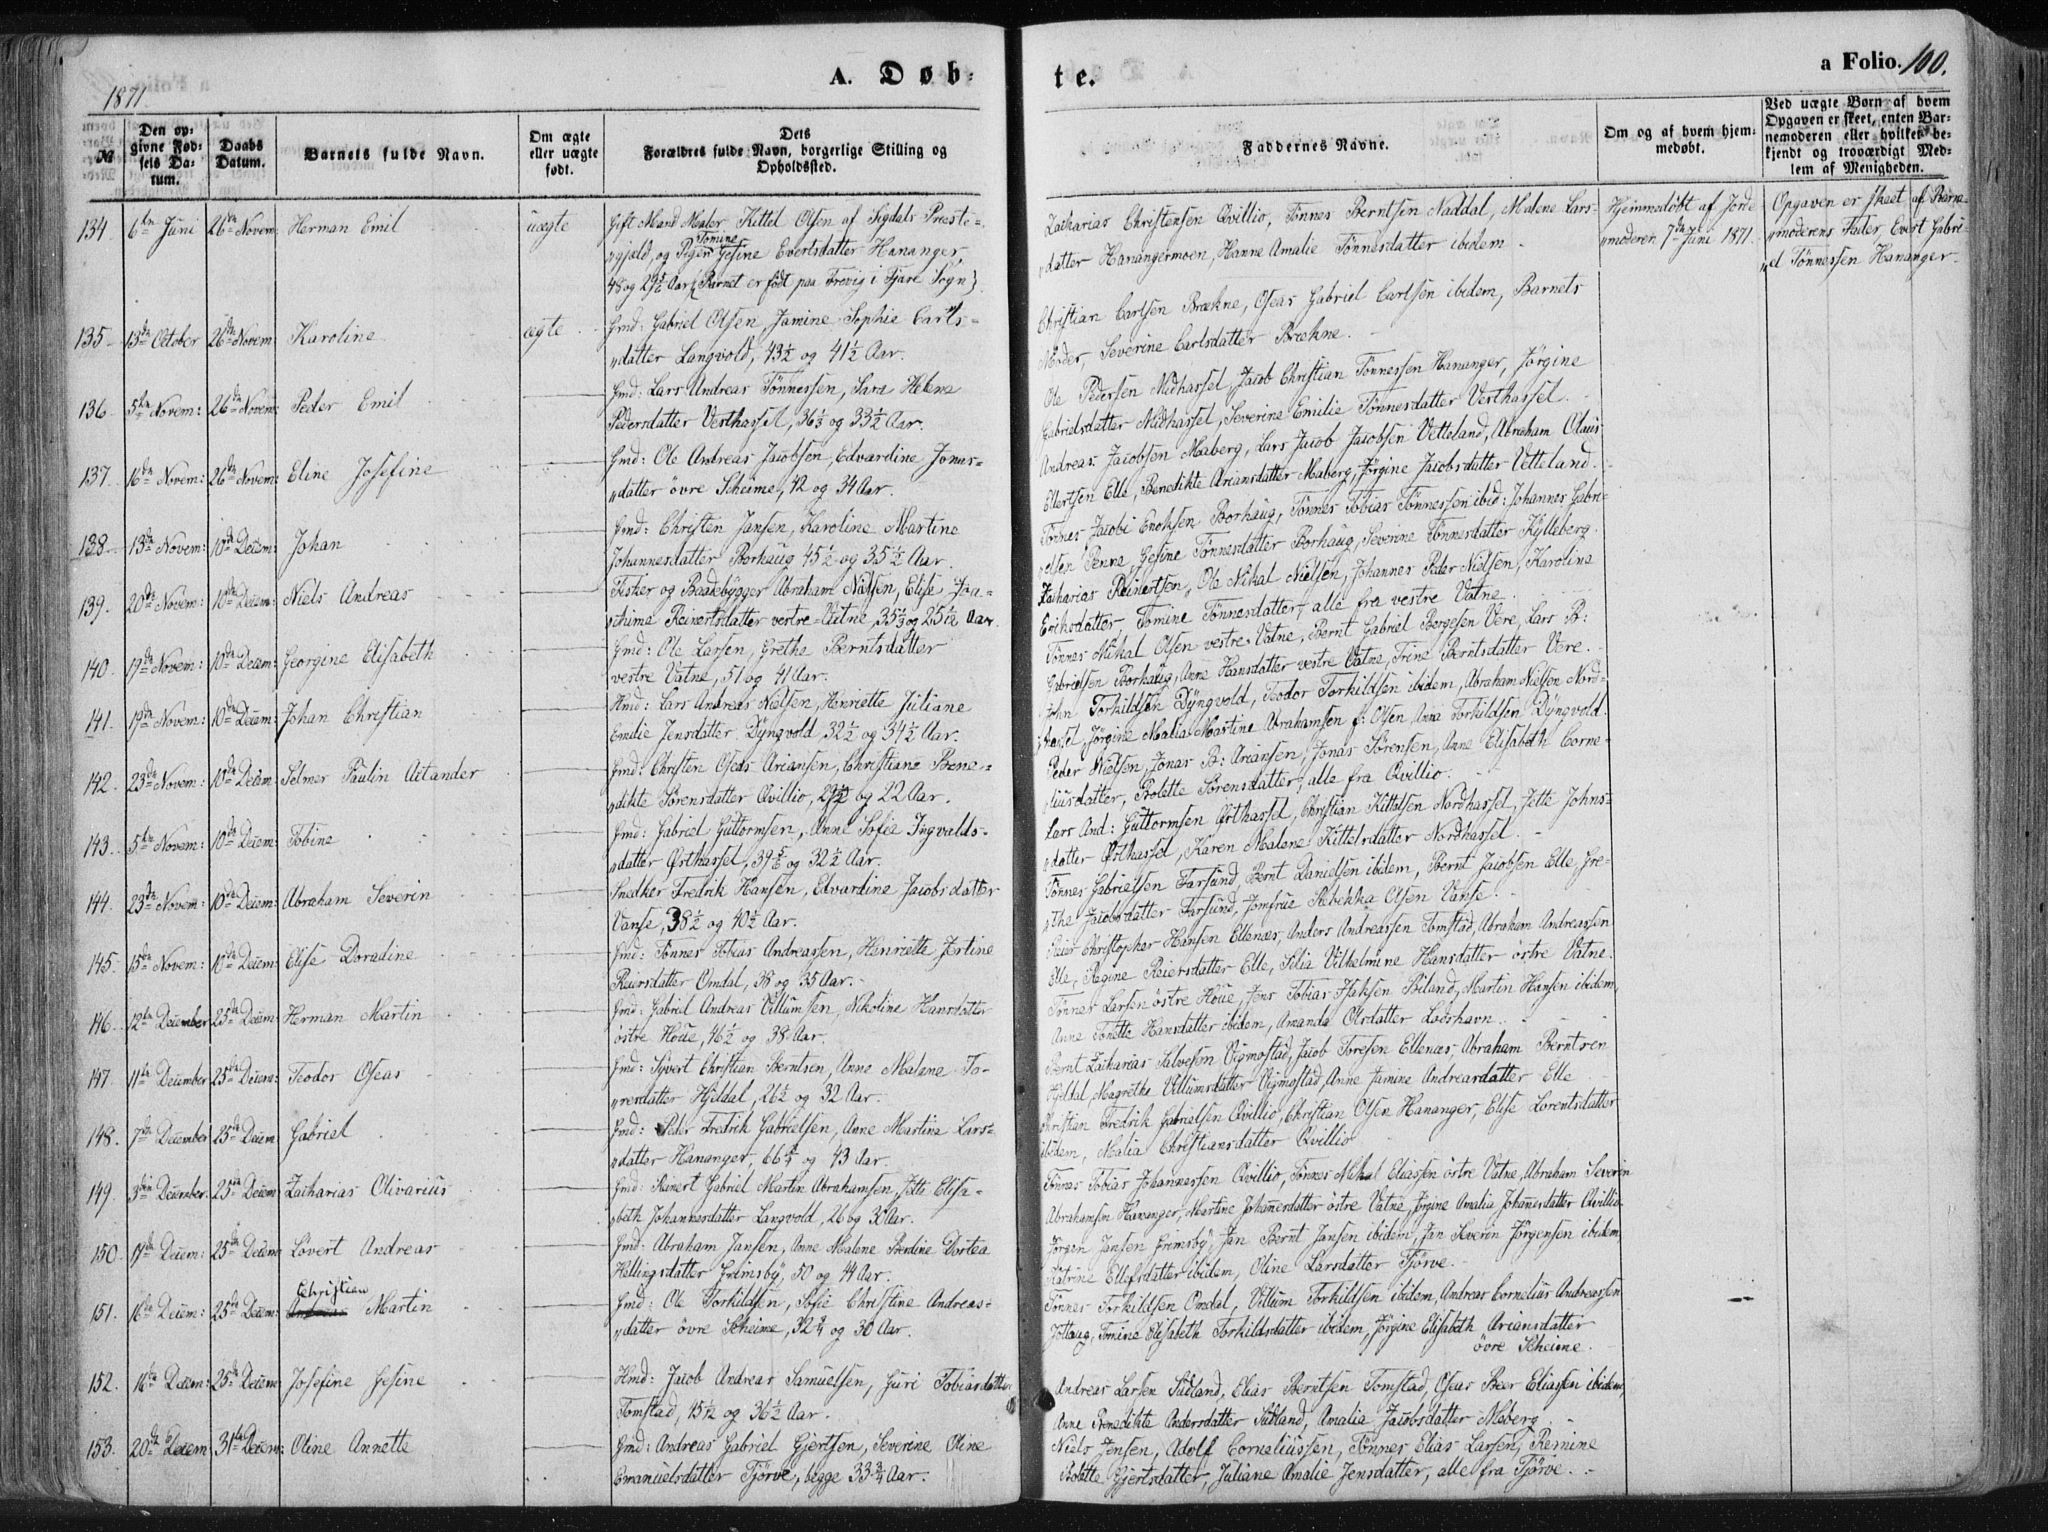 A. Døb-
te.
a Folio. 100.
1871.
№
Den opgivne Fødsels Datum.
Daabs Datum.
Barnets fulde Navn.
Om ægte eller uægte født.
Dets Forældres fulde Navn, borgerlige Stilling og Opholdssted.
Faddernes Navne.
Om og af hvem hjemmedøbt.
Ved uægte Børn af hvem Opgaven er skeet, enten Barnemoderen eller hvilket bekjendt og troværdigt Medlem af Menigheden.
134 6te Juni 26de Novem: Herman Emil uægte Gift Mand Maler Kittel Olsen af Sigdals Præste-
gjæld, og Pigen Tomine Gesine Evertsdatter Hananger,
48 og 29 5/6 Aar (Barnet er født paa Frevig i Fjære Sogn).
Zacharias Christensen Qvillio, Tønnes Berntsen Naddal, Malene Lars-
datter Hanangermoen, Hanne Amalie Tønnesdatter ibidem.
Hjemmedøbt af Jorde-
moderen 7de Juni 1871.
Opgaven er skeet af Barne-
moderens Fader, Evert Gabri-
el Tønnessen Hananger.
135 13de October 26de Novem: Karoline ægte Gmd: Gabriel Olsen, Jamine Sophie Carls-
datter Langvold, 43½ og 41½ Aar.
Christian Carlsen Brækne, Oseas Gabriel Carlsen ibidem, Barnets
Moder, Severine Carlsdatter Brækne.
136 5te Novem: 26de Novem: Peder Emil Gmd: Lars Andreas Tønnessen, Sara Helene
Pedersdatter Vesthassel, 36⅓ og 33½ Aar.
Ole Pedersen Midhassel, Jacob Christian Tønnessen Hananger, Jørgine
Gabrielsdatter Midhassel, Severine Emilie Tønnesdatter Vesthassel.
137. 16de Novem: 26de Novem: Eline Josefine Gmd: Ole Andreas Jacobsen, Edvardine Jonas-
datter øvre Scheime, 42 og 34 Aar.
Andreas Jacobsen Maberg, Lars Jacob Jacobsen Vetteland, Abraham Olaus
Ellertsen Elle, Benedikte Ariansdatter Maberg, Jørgine Jacobsdatter Vetteland.
138 13de Novem: 10de Decem: Johan Gmd: Christen Jansen, Karoline Martine
Johannesdatter Borhaug 45½ og 35½ Aar.
Tønnes Jacobi Enoksen Borhaug, Tønnes Tobias Tønnessen ibid: Johannes Gabri-
elsen Penne, Gesine Tønnesdatter Borhaug, Severine Tønnesdatter Kylleberg.
139. 20de Novem: 10de Decem: Niels Andreas Fisker og Baadebygger Abraham Nielsen, Elise Joa-
chime Reinertsdatter vestre-Vatne, 35⅓ og 25 1/12 Aar.
Zacharias Reinertsen, Ole Mikal Nielsen, Johannes Peder Nielsen, Karoline
Eriksdatter, Tomine Tønnesdatter, alle fra vestre Vatne.
140. 19de Novem: 10de Decem: Georgine Elisabeth Gmd: Ole Larsen, Grethe Berntsdatter
vestre Vatne, 51 og 41 Aar.
Tønnes Mikal Olsen vestre Vatne, Bernt Gabriel Børgesen Vere, Lars B:
Gabrielsen Borhaug, Anne Hansdatter vestre Vatne, Trine Berntsdatter Vere.
141. 19de Novem: 10de Decem: Johan Christian Hmd: Lars Andreas Nielsen, Henriette Juliane
Emilie Jensdatter, Dyngvold, 32½ og 34½ Aar.
John Torkildsen Dyngvold, Teodor Torkildsen ibidem, Abraham Nielsen Nord-
hassel, Jørgine Malia Martine Abrahamsen f: Olsen Anne Torkildsen Dyngvold.
142. 23de Novem: 10de Decem: Selmer Paulin Aitander Gmd: Christen Oseas Ariansen, Christiane Bene-
dikte Sørensdatter Qvillio, 29½ og 22 Aar.
Peder Nielsen, Jonas B: Ariansen, Jonas Sørensen, Anne Elisabeth Corne-
liusdatter, Bolette Sørensdatter, alle fra Qvillio.
143. 5te Novem: 10de Decem: Tobine Gmd: Gabriel Guttormsen, Anne Sofie Ingvalds-
datter Østhassel, 39 5/6 og 32½ Aar.
Lars And: Guttormsen Østhassel, Christian Kittelsen Nordhassel, Jette Johns-
datter Østhassel, Karen Malene Kittelsdatter Nordhassel.
144. 23de Novem: 10de Decem: Abraham Severin Snedker Fredrik Hansen, Edvardine Jacobsdatter
Vanse, 38½ og 40½ Aar.
Tønnes Gabrielsen Farsund, Bernt Danielsen ibidem, Bernt Jacobsen Elle, Gre-
the Jacobsdatter Farsund, Jomfrue Rebekka Olsen Vanse.
145. 15de Novem: 10de Decem: Elise Doradine Gmd: Tønnes Tobias Andreassen, Henriette Jertine
Reiersdatter Omdal, 38 og 35 Aar.
Reier Christopher Hansen Ellenæs, Anders Andreassen Tomstad, Abraham Andreassen
Elle, Regine Reiersdatter Elle, Silia Vilhelmine Hansdatter østre Vatne.
146 12te December 25de Decem: Herman Martin Gmd: Gabriel Andreas Villumsen, Nikoline Hansdatter
østre Houe, 46½ og 38 Aar.
Tønnes Larsen østre Houe, Jens Tobias Isaksen Biland, Martin Hansen ibidem,
Anne Tonette Hansdatter ibidem, Amanda Olsdatter Loshavn.
147. 11te December 25de Decem: Teodor Oseas Gmd: Syvert Christian Berntsen, Anne Malene To-
resdatter Hjildal, 26½ og 32 Aar.
Bernt Zacharias Salvesen Vigmostad, Jacob Toresen Ellenæs, Abraham Berntsen
Hjildal, Magrethe Villumsdatter Vigmostad, Anne Jamine Andreasdatter Elle
148. 7de December 25de Decem Gabriel Gmd: Peder Fredrik Gabrielsen, Anne Martine Lars-
datter Hananger, 66¾ og 43 Aar.
Christian Fredrik Gabrielsen Qvillio, Christian Olsen Hananger, Elise Lorentsdatter
ibidem, Malia Christiansdatter Qvillio
149. 3die December 25de Decem Zacharias Olivarius Gmd: Reinert Gabriel Martin Abrahamsen, Jette Elisa-
beth Johannesdatter Langvold, 26 og 30 Aar.
Tønnes Tobias Johannessen Qvillio, Tønnes Mikal Eliassen østre Vatne, Abraham Severin
Abrahamsen Hananger, Martine Johannesdatter østre Vatne, Jørgine Amalia Johannesdatter Qvillio.
150. 17de Decem: 25de Decem: Lovert Andreas Gmd: Abraham Jansen, Anne Malene Berdine Dortea
Hellingsdatter Grimsby, 50 og 44 Aar.
Jørgen Jansen Grimsby, Jan Bernt Jansen ibidem, Jan Severin Jørgensen ibidem,
Katrine Ellefsdatter ibidem, Oline Larsdatter Tjørve.
151. 16de Decem: 25de Decem: Christian Martin Gmd: Ole Torkildsen, Sofie Christine Andreas-
datter øvre Scheime, 32¾ og 30 Aar.
Tønnes Torkildsen Omdal, Villum Torkildsen ibidem, Andreas Cornelius Andreassen
Jottaug, Tomine Elisabeth Torkildsdatter ibidem, Jørgine Elisabeth Ariansdatter
øvre Scheime.
152. 16de Decem: 25de Decem: Josefine Gesine Hmd: Jacob Andreas Samuelsen, Guri Tobiasdatter
Tomstad, 45 1/12 og 36½ Aar.
Andreas Larsen Sudland, Elias Berntsen Tomstad, Oseas Beer Eliassen ibidem,
Anne Benedikte Andersdatter Sudland, Amalia Jacobsdatter Maberg.
153. 20de Decem 31te Decem: Oline Annette Gmd: Andreas Gabriel Gjertsen, Severine Oline
Emanuelsdatter Tjørve, begge 33¾ Aar.
Niels Jensen, Adolf Corneliussen, Tønnes Elias Larsen, Remine
Bolette Gjertsdatter, Juliane Amalie Jensdatter, alle fra Tjørve.